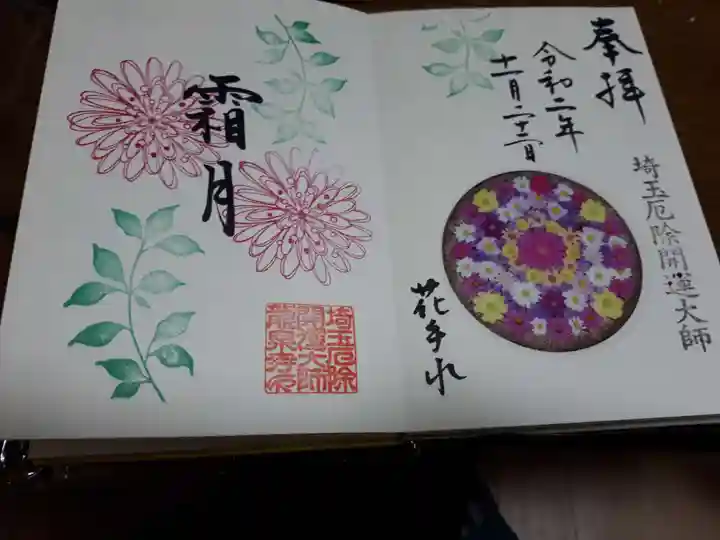 奉拝
令和二年
十一月二十二日
埼玉厄除開運大師
花手水
霜月
埼玉厄除
開運大師
龍泉寺印